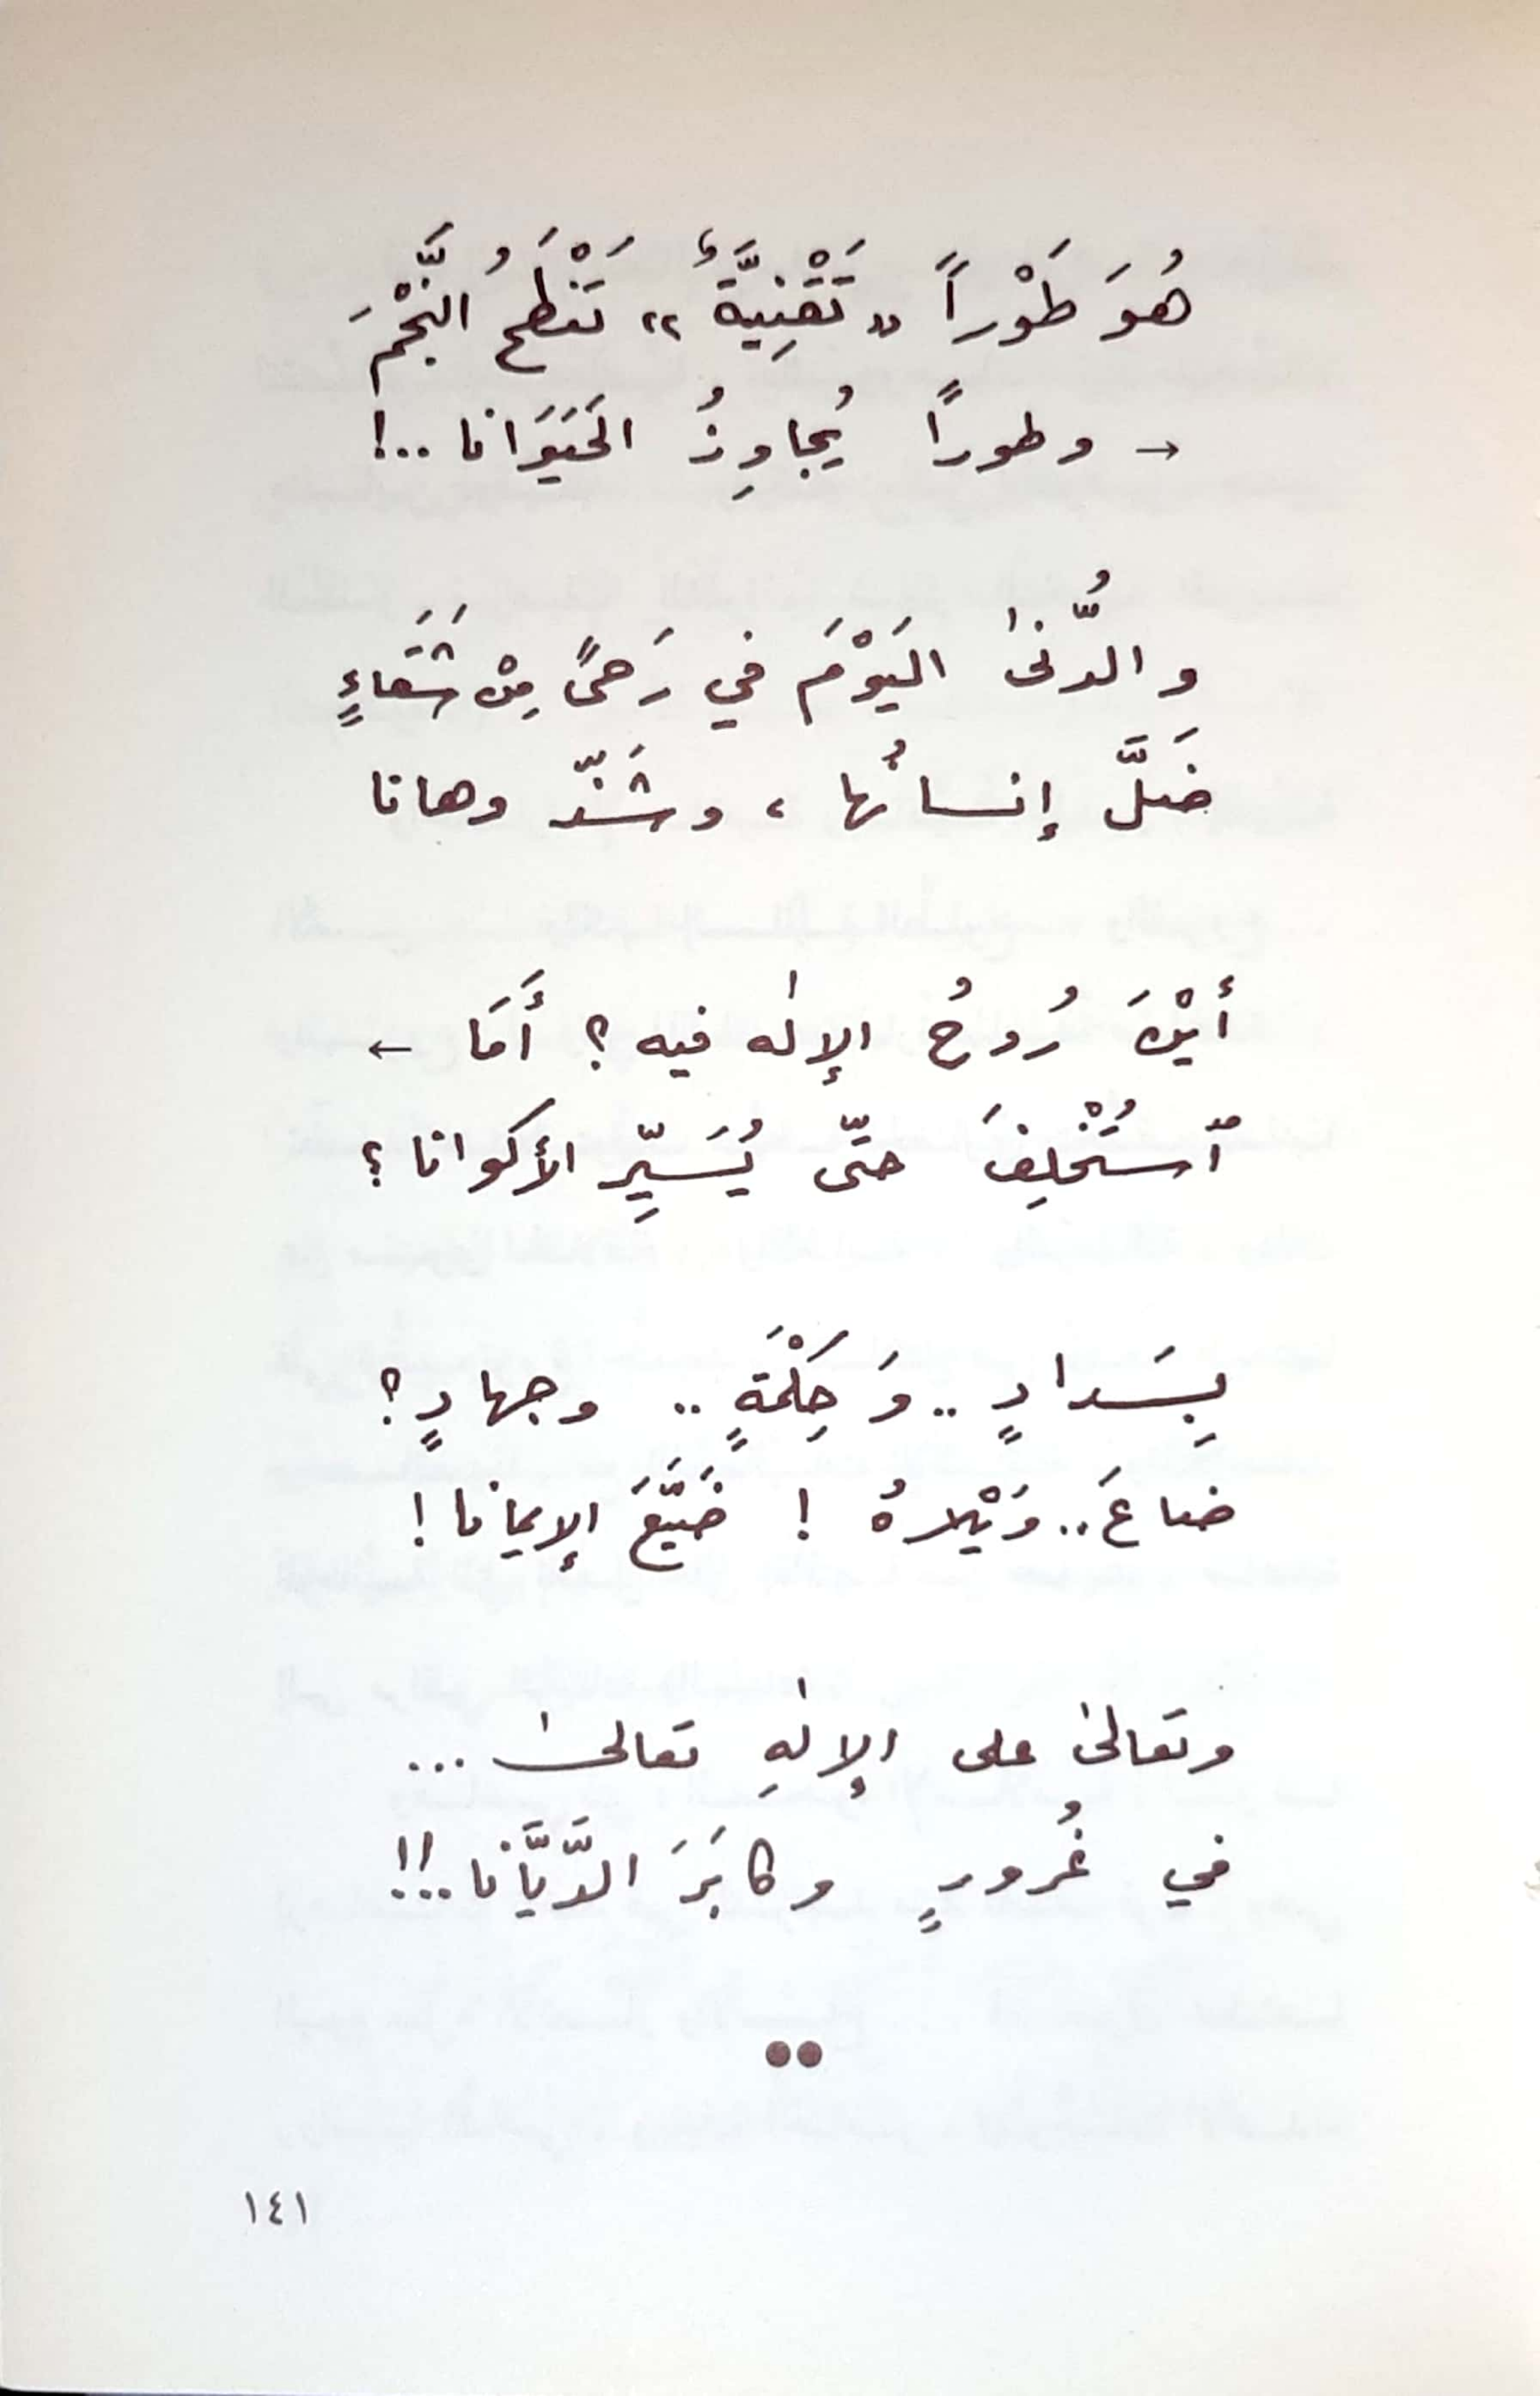 هُوَ طَوْراً « تَقْنِيَّةٌ » تَنْطَحُ النَّجْمَ
→ وطوراً يُجاوِزُ الحَيَوَانا ..!
والدُّنىٰ اليَوْمَ في رَحىً مِنْ شَقَاءٍ
ضَلَّ إنسانُها ، وشَذّ وهانا
أَيْنَ رُوحُ الإلٰه فيه ؟ أَمَا ←
ٱسْتُخْلِفَ حتّى يُسَيِّر الأكوانا ؟
بِسَدادٍ .. وَحِكْمَةٍ .. وجهادٍ ؟
ضاعَ .. وَيْلاهُ ! ضَيَّعَ الإيمانا !
وتعالىٰ على الإلٰهِ تعالىٰ ...
في غُرورٍ وكابَرَ الدَّيَّانا ..!!
١٤١